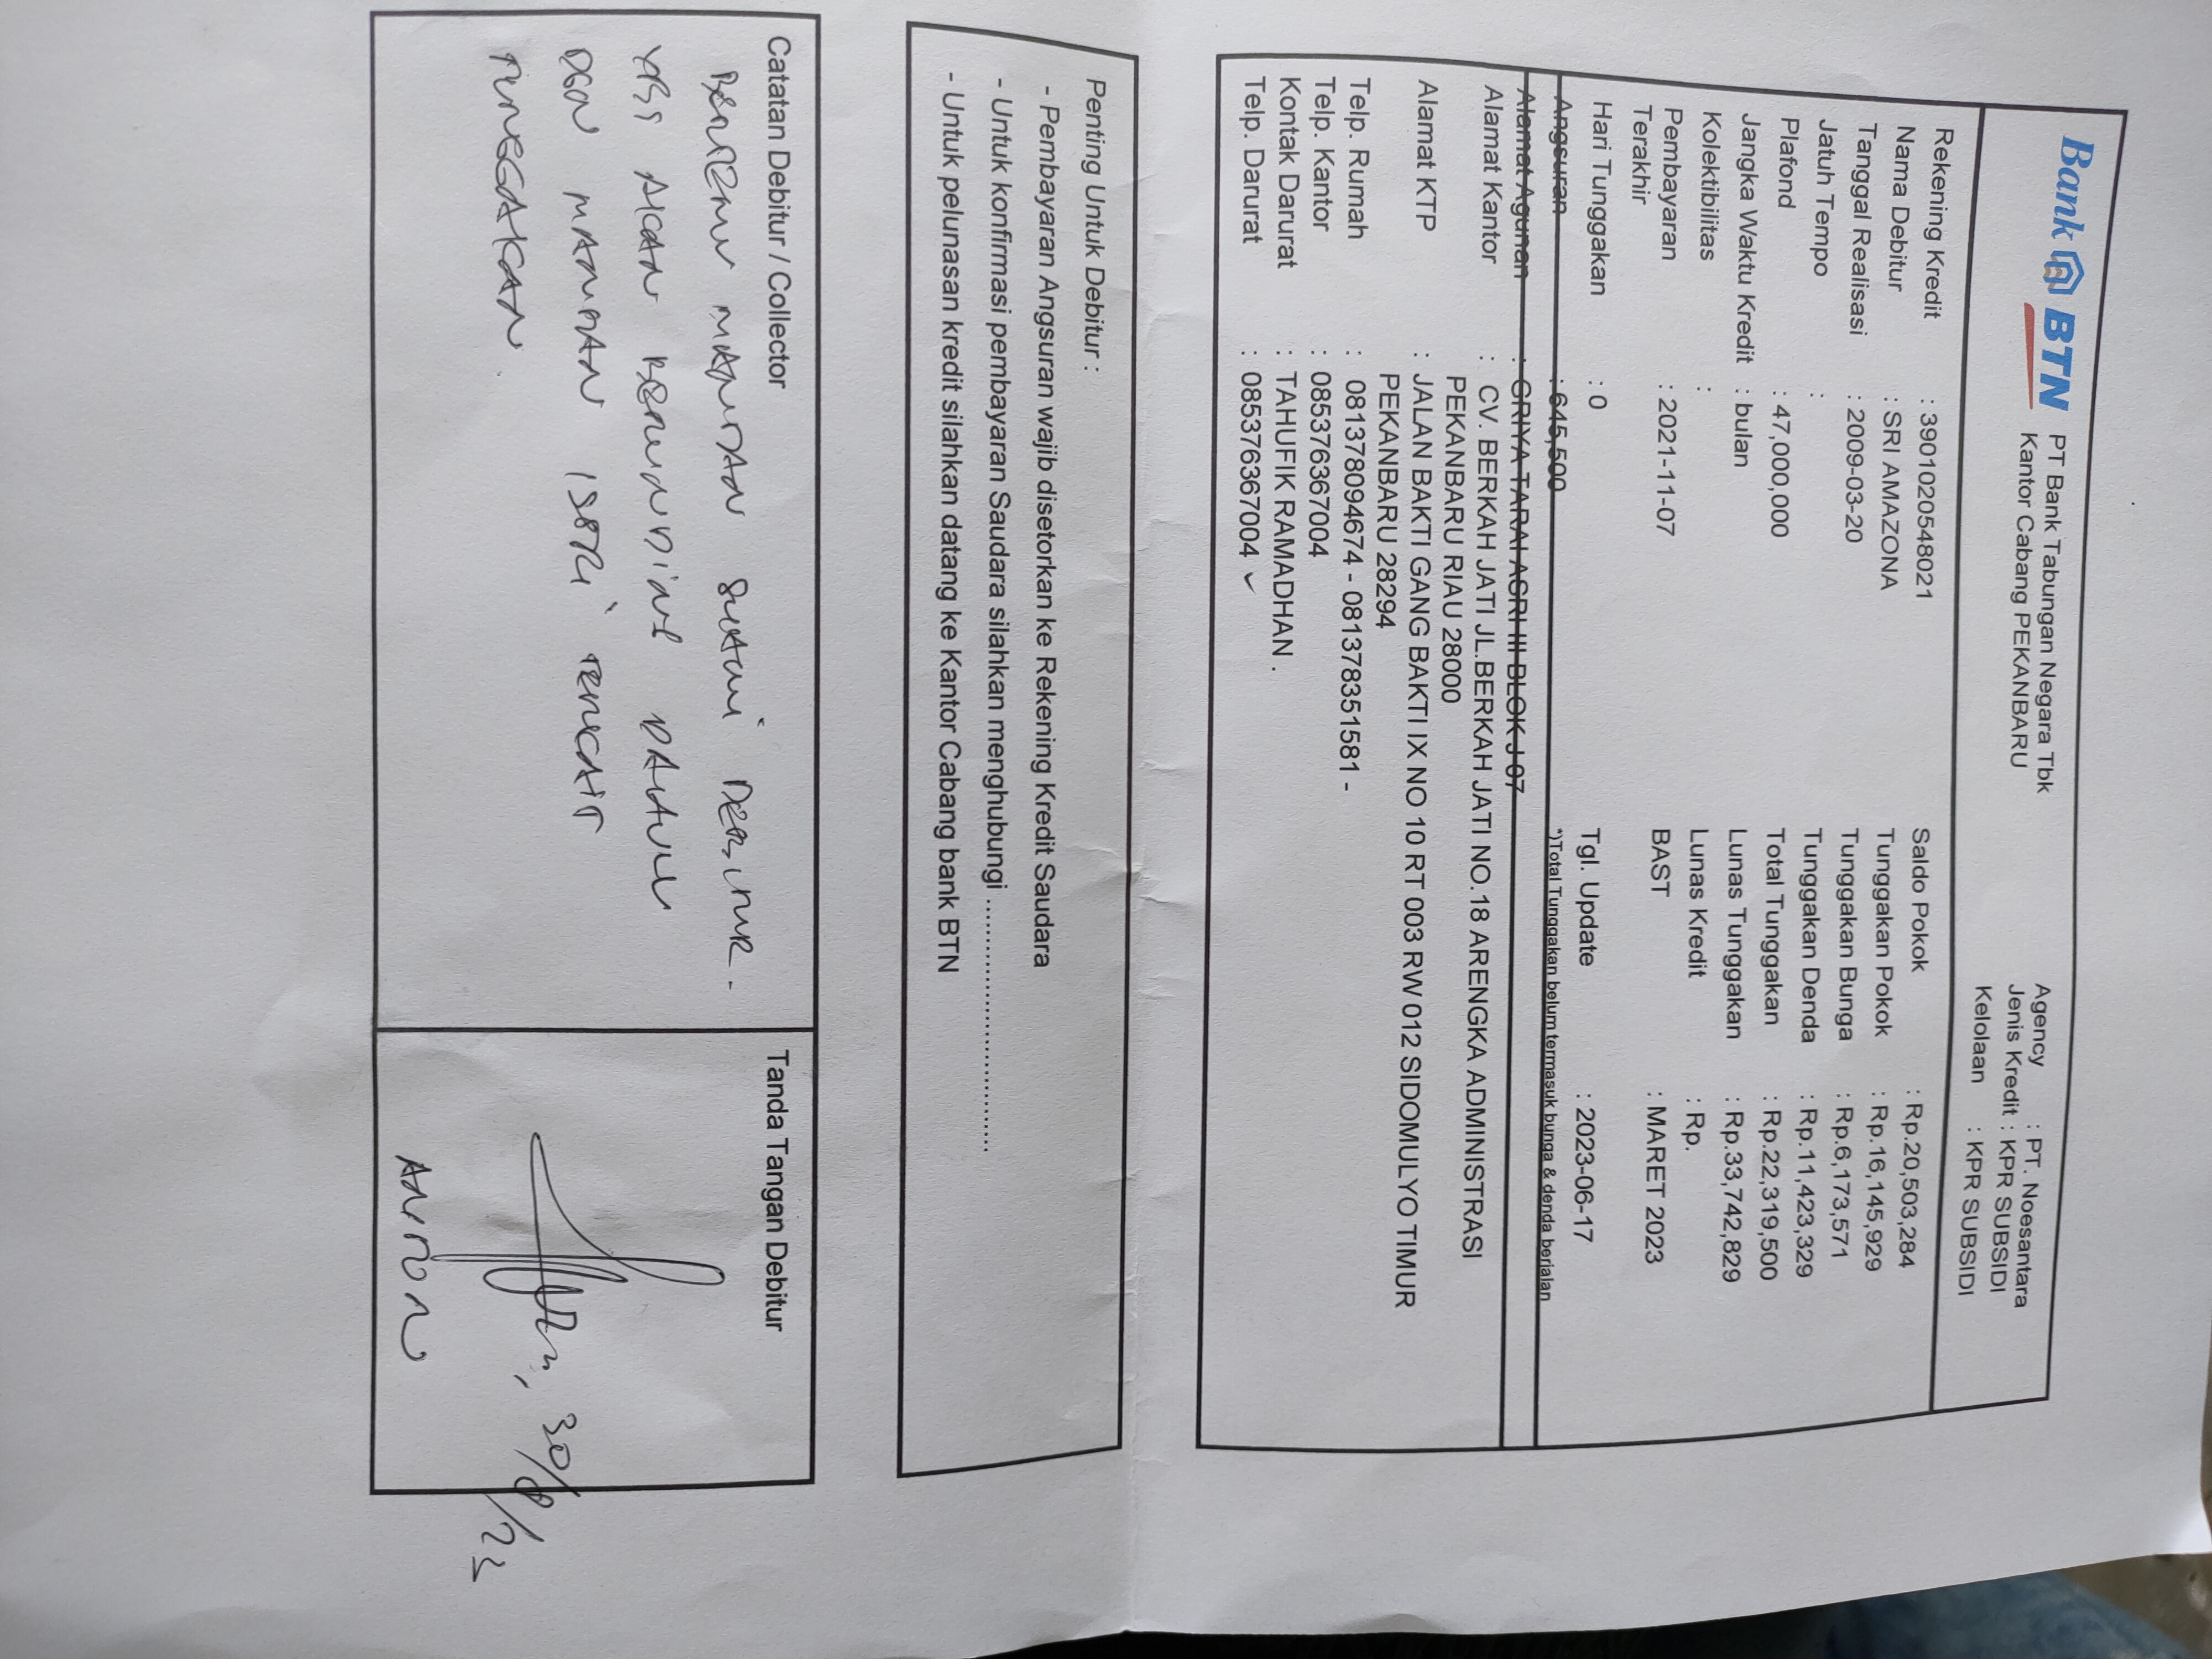 Bank BTN
PT Bank Tabungan Negara Tbk
Kantor Cabang PEKANBARU
Agency : PT. Noesantara
Jenis Kredit : KPR SUBSIDI
Kelolaan : KPR SUBSIDI
Rekening Kredit : 3901020548021
Nama Debitur : SRI AMAZONA
Tanggal Realisasi : 2009-03-20
Jatuh Tempo :
Plafond : 47,000,000
Jangka Waktu Kredit : bulan
Kolektibilitas :
Pembayaran Terakhir : 2021-11-07
Hari Tunggakan : 0
Angsuran : 645,500
Saldo Pokok : Rp.20,503,284
Tunggakan Pokok : Rp.16,145,929
Tunggakan Bunga : Rp.6,173,571
Tunggakan Denda : Rp.11,423,329
Total Tunggakan : Rp.22,319,500
Lunas Tunggakan : Rp.33,742,829
Lunas Kredit : Rp.
BAST : MARET 2023
Tgl. Update : 2023-06-17
*)Total Tunggakan belum termasuk bunga & denda berjalan
Alamat Agunan : GRIYA TARAI ASRI III BLOK J 07
Alamat Kantor : CV. BERKAH JATI JL.BERKAH JATI NO.18 ARENGKA ADMINISTRASI
PEKANBARU RIAU 28000
Alamat KTP : JALAN BAKTI GANG BAKTI IX NO 10 RT 003 RW 012 SIDOMULYO TIMUR
PEKANBARU 28294
Telp. Rumah : 081378094674 - 081378351581 -
Telp. Kantor : 085376367004
Kontak Darurat : TAHUFIK RAMADHAN .
Telp. Darurat : 085376367004 ✓
Penting Untuk Debitur :
- Pembayaran Angsuran wajib disetorkan ke Rekening Kredit Saudara
- Untuk konfirmasi pembayaran Saudara silahkan menghubungi ................................
- Untuk pelunasan kredit silahkan datang ke Kantor Cabang bank BTN
Catatan Debitur / Collector
MANTAN SUAMI DEBITUR -
YBS AKAN DAHULU
DGN MANTAN ISTRI TERKAIT
TUNGGAKAN
Tanda Tangan Debitur
30/8/23